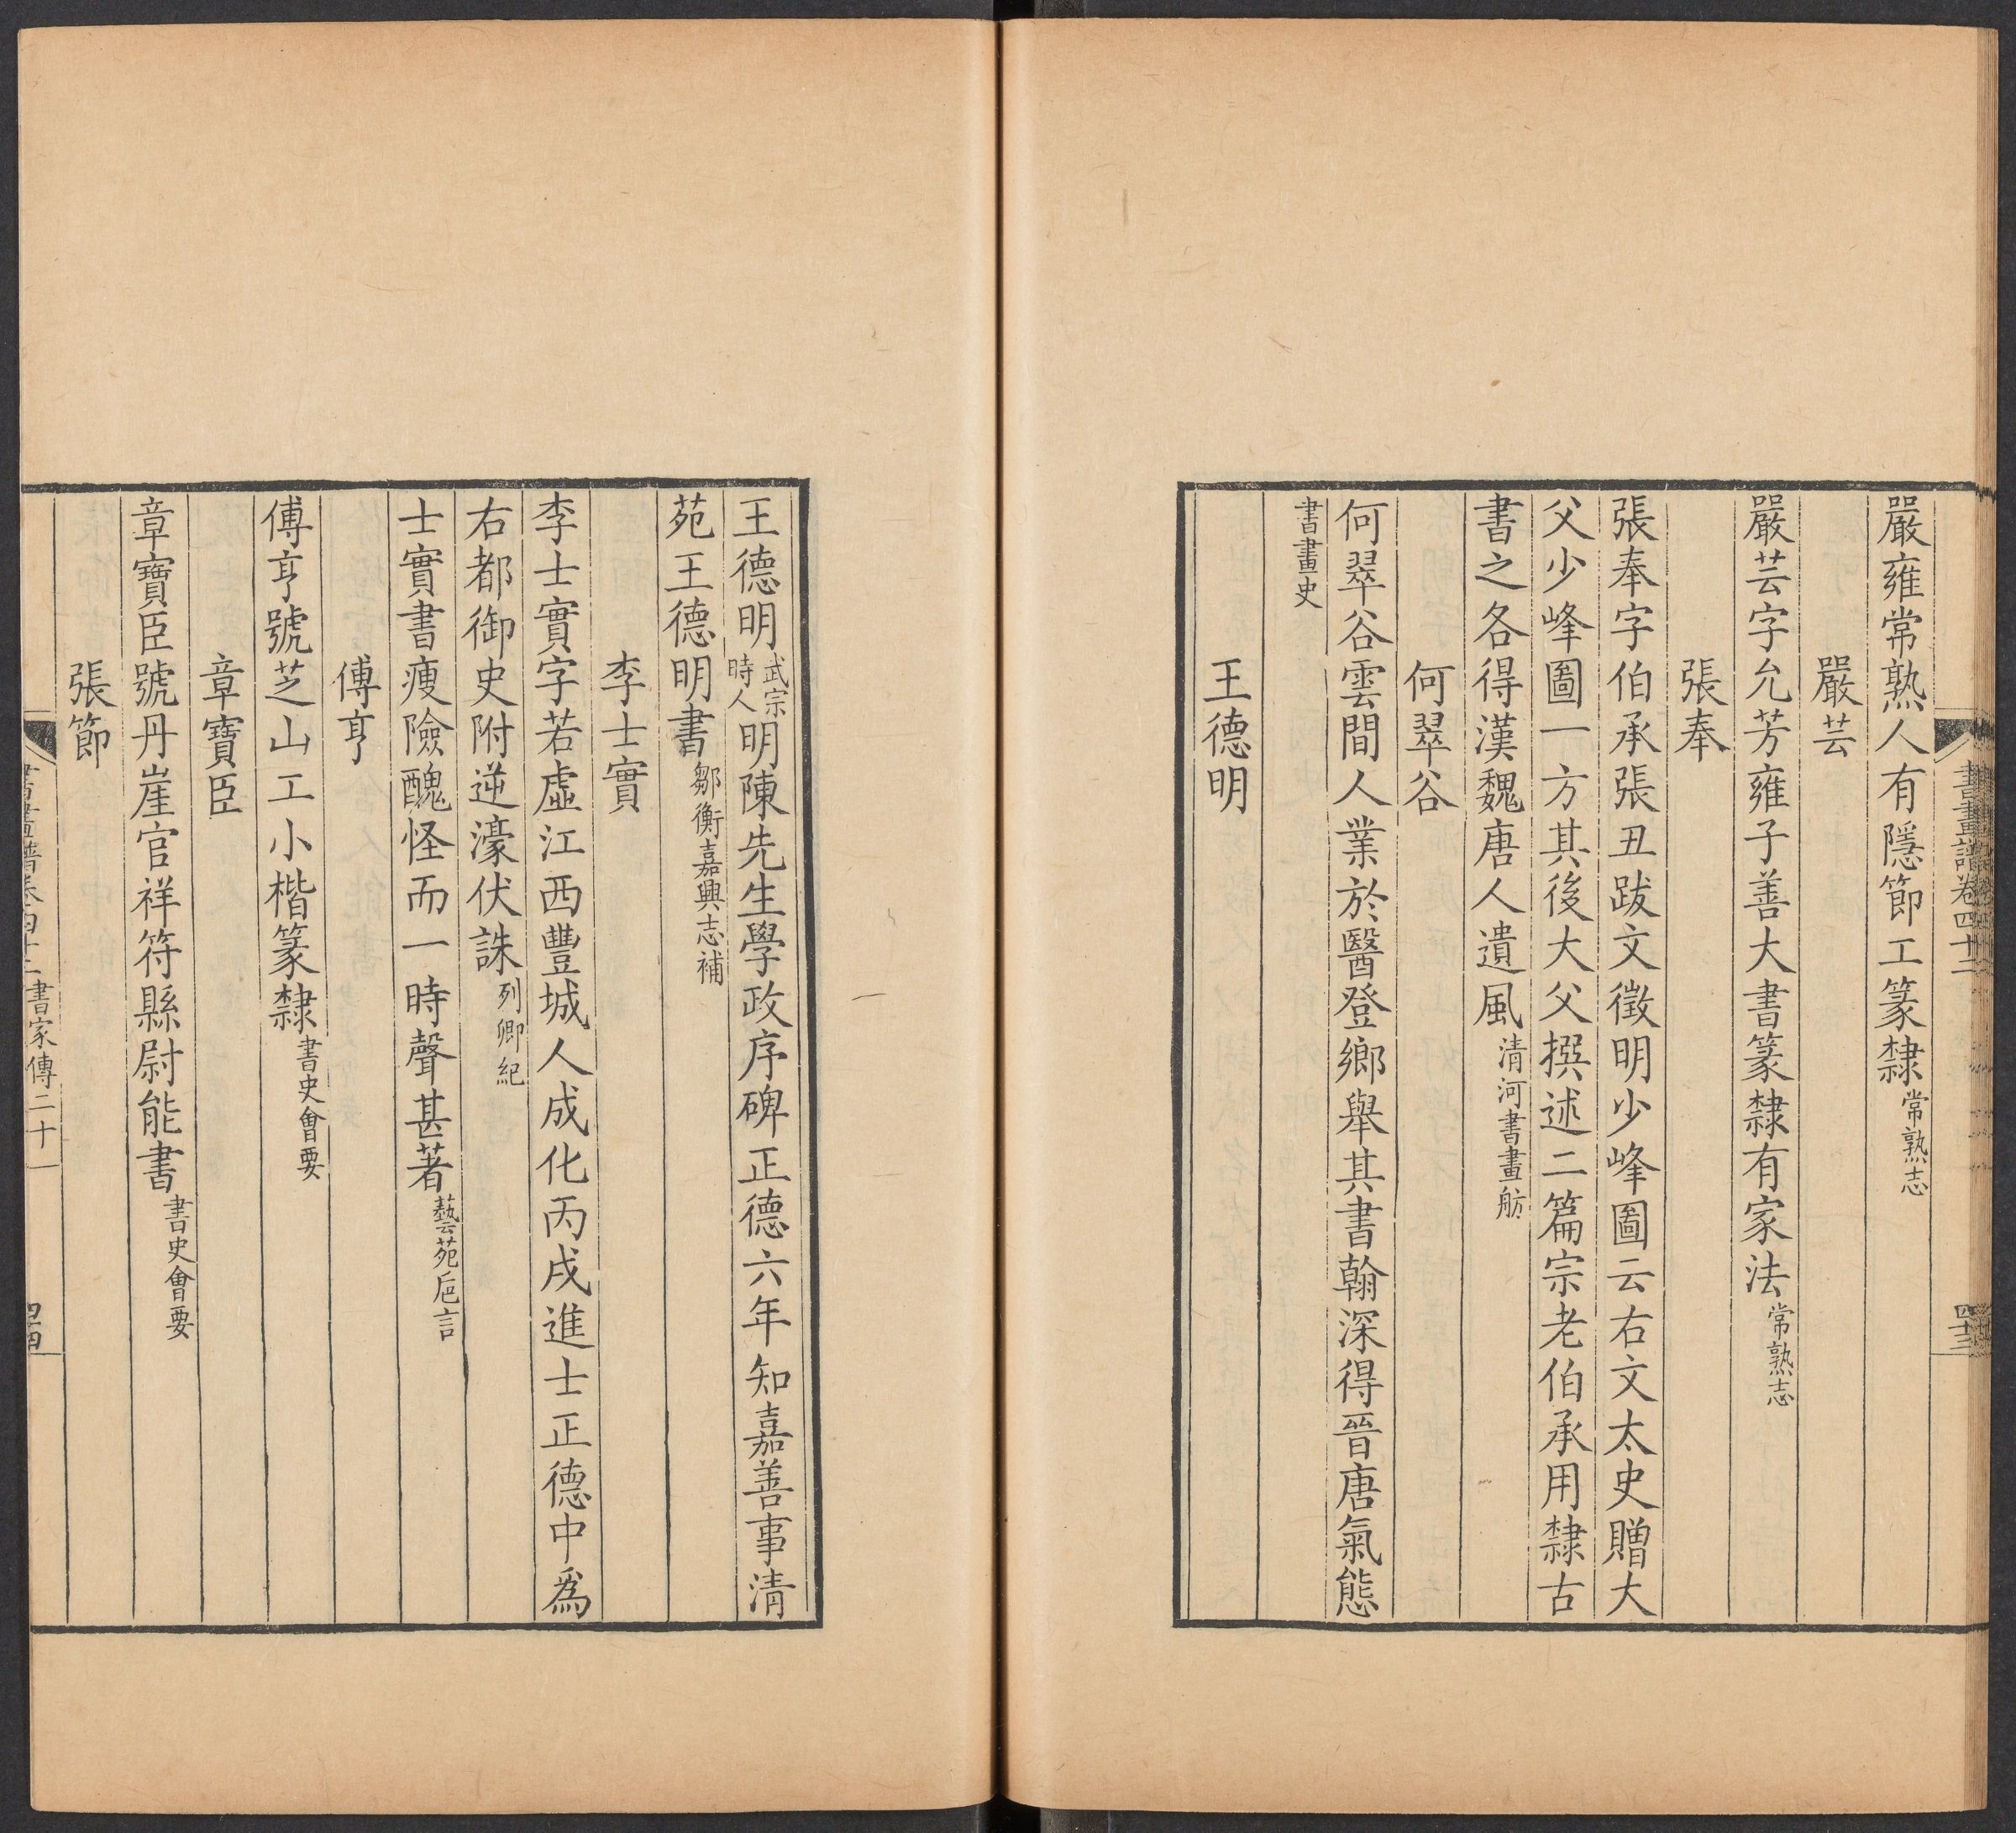 書畫譜卷四十二
四十三
嚴雍常熟人有隱節工篆隸常熟志
嚴芸
嚴芸字允芳雍子善大書篆隸有家法常熟志
張奉
張奉字伯承張丑跋文徵明少峰圖云右文太史贈大
父少峰圖一方其後大父撰述二篇宗老伯承用隸古
書之各得漢魏唐人遺風清河書畫舫
何翠谷
何翠谷雲間人業於醫登鄉舉其書翰深得晉唐氣態
書畫史
王德明
王德明武宗時人明陳先生學政序碑正德六年知嘉善事清
苑王德明書鄒衡嘉興志補
李士實
李士實字若虛江西豐城人成化丙戌進士正德中為
右都御史附逆濠伏誅列卿紀
士實書瘦險醜怪而一時聲甚著藝苑巵言
傅亨
傅亨號芝山工小楷篆隸書史會要
章寶臣
章寶臣號丹崖官祥符縣尉能書書史會要
張節
書畫譜卷四十二 書家傳二十一
四十四